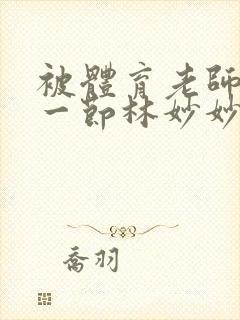 被體育老師
一節林妙妙
喬羽